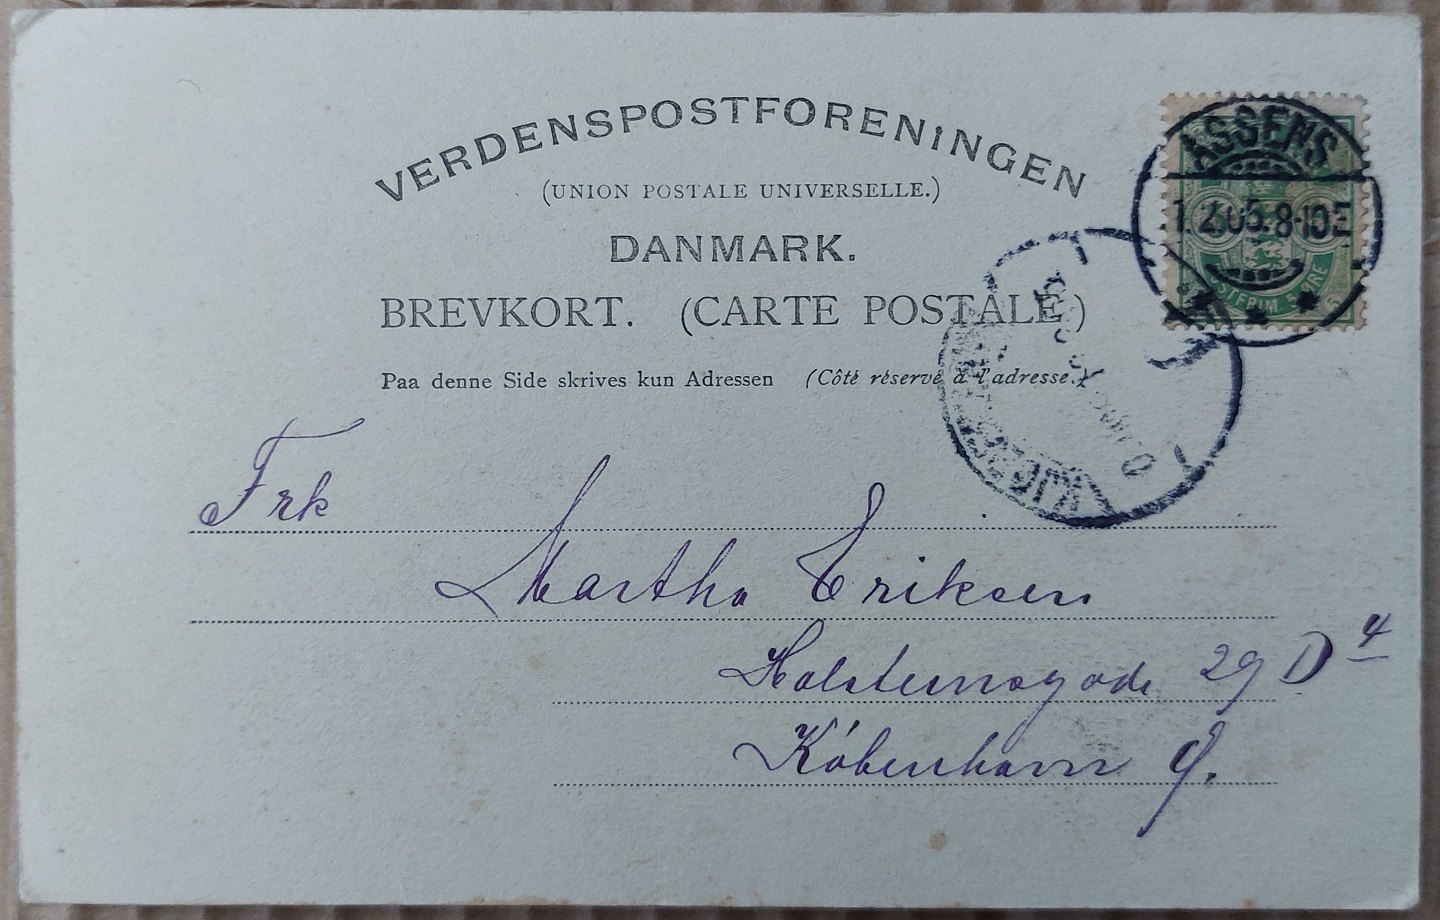 VERDENSPOSTFORENINGEN
(UNION POSTALE UNIVERSELLE.)
DANMARK.
BREVKORT. (CARTE POSTALE.)
Paa denne Side skrives kun Adressen (Côté réservé à l'adresse.)
ASSENS
1.2.05.8-10E
POSTFRIM
5
KJØB
Frk
Martha Eriksen
Holsteinsgade 29 D 4
København Ø.